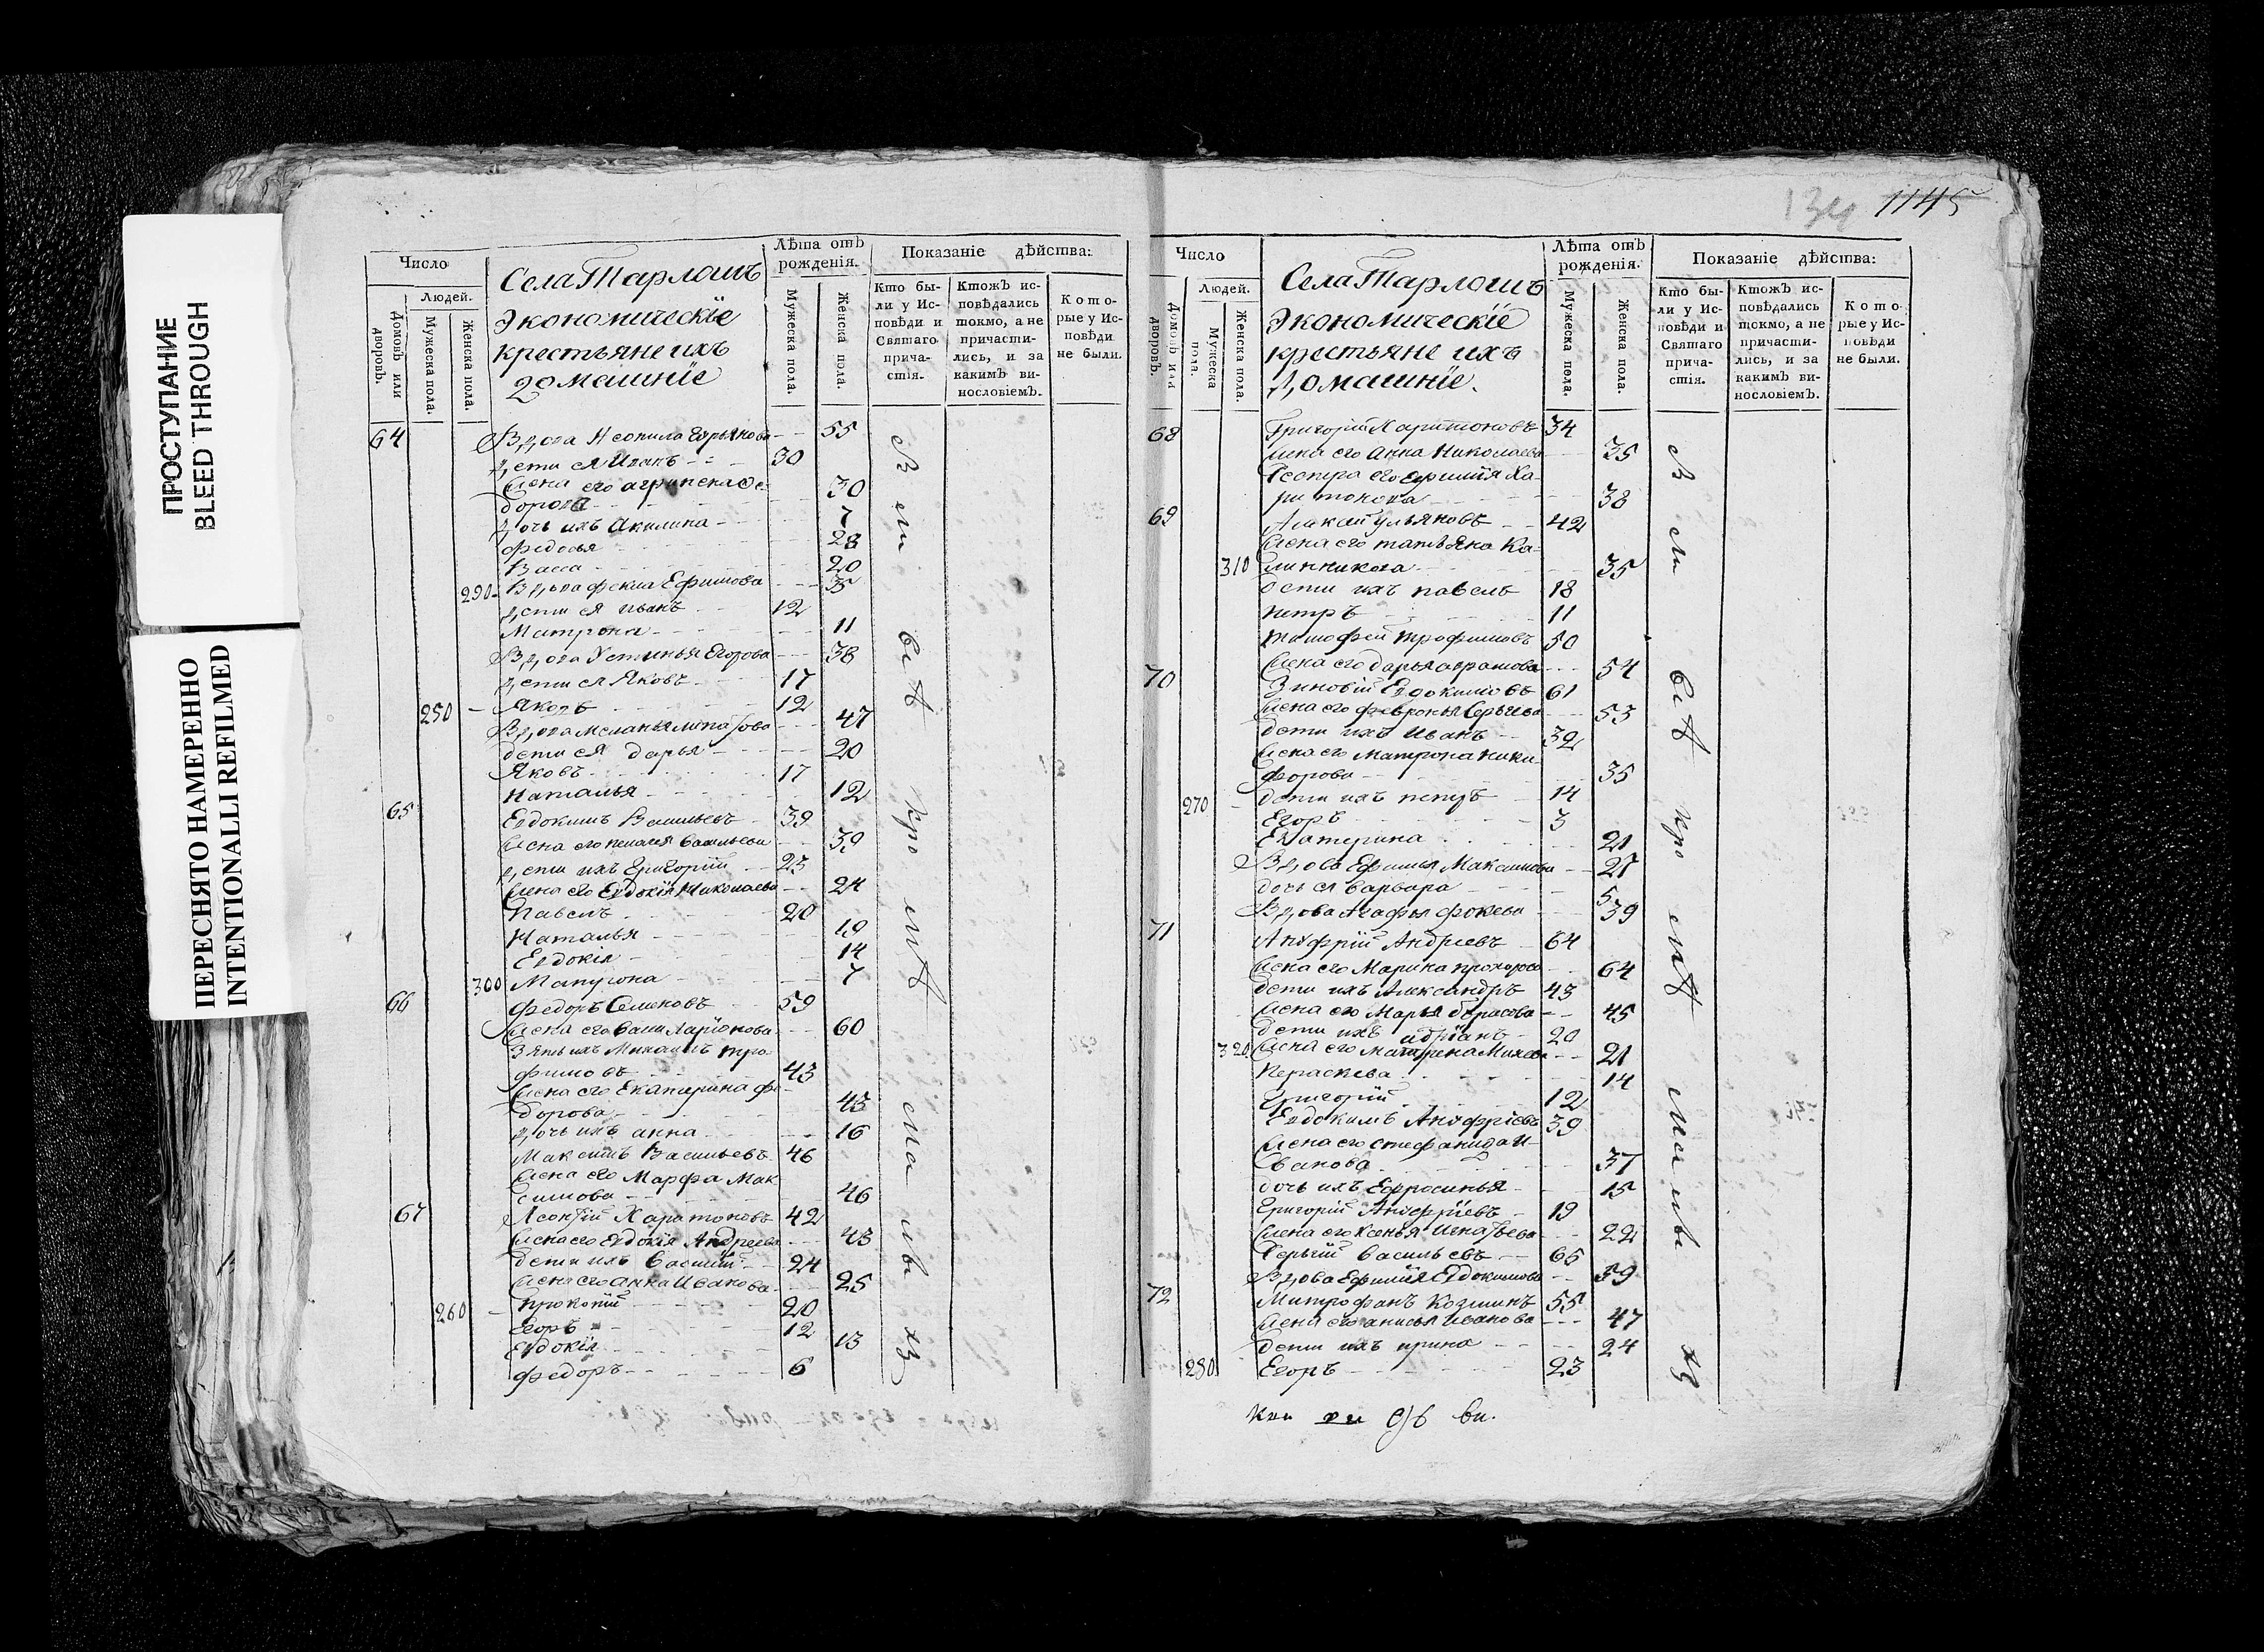 ПРОСТУПАНИЕ
BLEED THROUGH
ПЕРЕСНЯТО НАМЕРЕННО
INTENTIONALLI REFILMED
134 1145
Число
Людей.
Домовъ или дворовъ.
Мужеска пола.
Женска пола.
Села Тарлошъ
Экономическiе
крестьяне ихъ
домашнiе
Лѣта отъ рожденiя.
Мужеска пола.
Женска пола.
Показанiе дѣйства:
Кто бы-
ли у Ис-
повѣди и
Святаго
прича-
стiя.
Ктожъ ис-
повѣдались
токмо, а не
причасти-
лись, и за
какимъ ви-
нословiемъ.
Кото-
рые у Ис-
повѣди
не были.
64 Вдова 55
дети ея Иванъ 30
жена его агрипена Фе-
дорова 30
дочь ихъ Акилина 7
Федосья 28
Васса 20
290 Вдова Фекла Ефимова 35
дети ея иванъ 12
Матрона 11
Вдова Устинья Егорова 38
дети ея Яковъ 17
250 Яковъ 12
Вдова Меланья 47
дети ея дарья 20
Яковъ 17
Наталья 12
65 Евдокимъ Васильевъ 39
жена его пелагея васильева 39
дети ихъ Григорiй 23
жена его Евдокiя Николаева 24
Павелъ 20
Наталья 19
Евдокiя 14
300 Матрона 7
66 Федоръ Семеновъ 59
жена его Ларiонова 60
Зять ихъ Михаилъ тро-
фимовъ 43
жена его Екатерина фе-
дорова 43
дочь ихъ анна 16
Максимъ Васильевъ 46
жена его Марфа Мак-
симова 46
67 Леонтiй Харитоновъ 42
жена его Евдокiя Андреева 43
дети ихъ Василiй 24
жена его анна Иванова 25
260 Прокопiй 20
Егоръ 12
Евдокiя 13
Федоръ 6
Число
Людей.
Домовъ или дворовъ.
Мужеска пола.
Женска пола.
Села Тарлошъ
Экономическiе
крестьяне ихъ
домашнiе.
Лѣта отъ рожденiя.
Мужеска пола.
Женска пола.
Показанiе дѣйства:
Кто бы-
ли у Ис-
повѣди и
Святаго
прича-
стiя.
Ктожъ ис-
повѣдались
токмо, а не
причасти-
лись, и за
какимъ ви-
нословiемъ.
Кото-
рые у Ис-
повѣди
не были.
68 Григорiй Харитоновъ 34
жена его Анна Николаева 35
Сестра его ефимiя Ха-
ритонова 38
69 ульяновъ 42
жена его татьяна Ка-
310 линникова 35
дети ихъ павелъ 18
петръ 11
тимофей трофимовъ 50
жена его дарья 54
70 Зиновiй Евдокимовъ 61
жена его февронья Сергеева 53
дети ихъ Иванъ 32
жена его Матрона ники-
форова 35
270 дети ихъ петръ 14
Егоръ 3
Екатерина 21
Вдова Ефимья Максимова 27
дочь ея варвара 5
Вдова Агафья фокева 39
71 Анофрiй Андреевъ 64
жена его Марина прохорова 64
дети ихъ Александръ 43
жена его Марья 45
дети ихъ адрiанъ 20
320 жена его матрена Михева 21
Пераскева 14
Григорiй 12
Евдокимъ Анофрiевъ 39
жена его стефанида И-
ванова 37
дочь ихъ Ефросинья 15
Григорiй Анофрiевъ 19
жена его Ксенья Игнатьева 22
Сергiй васильевъ 65
Вдова Ефимiя Евдокимова 59
72 Митрофанъ Козминъ 55
жена его анисья Иванова 47
дети ихъ ирина 24
280 Егоръ 23